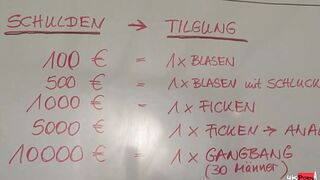 SCHULDEN → TILGUNG
100 € = 1x BLASEN
500 € = 1x BLASEN mit SCHLUCK
1000 € = 1x FICKEN
5000 € = 1x FICKEN → ANA
10000 € = 1x GANGBANG
(30 Männer)